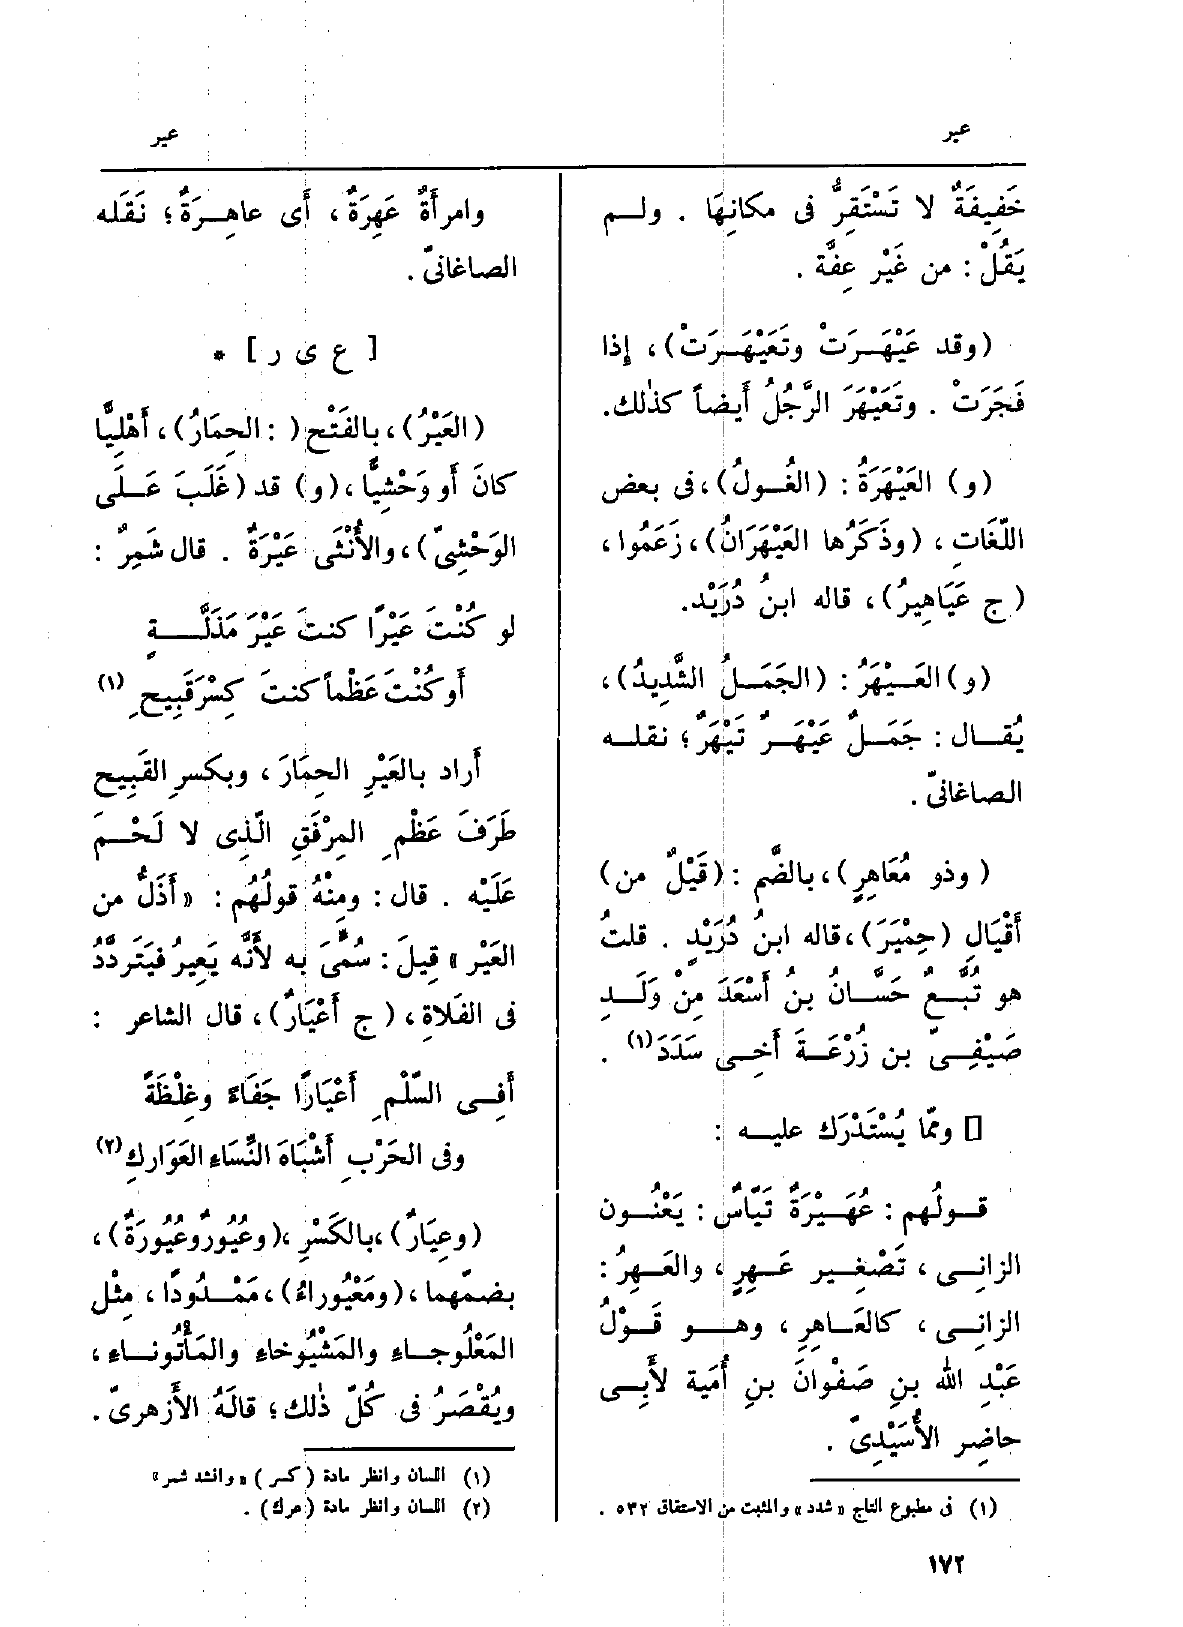 عير
عير
خَفِيفَةٌ لا تَسْتَقِرُّ فى مكانِهَا . ولم
يَقُلْ : من غَيْر عِفَّة .
(وقد عَيْهَرَتْ وتَعَيْهَرَتْ)، إذا
فَجَرَتْ . وتَعَيْهَرَ الرَّجُلُ أيضاً كذٰلك.
(و) العَيْهَرَةُ : (الغُولُ)، فى بعض
اللّغَاتِ، (وذَكَرُها العَيْهَرَانُ)، زَعَمُوا،
(ج عَيَاهِيرُ)، قاله ابنُ دُرَيْد.
(و) العَيْهَرُ : (الجَمَلُ الشَّدِيدُ)،
يُقال : جَمَلٌ عَيْهَرٌ تَيْهَرٌ؛ نقله
الصاغانىّ .
(وذو مُعَاهِرٍ)، بالضّم : (قَيْلٌ من)
أَقْيَالِ (حِمْيَرَ)، قاله ابنُ دُرَيْدٍ . قلتُ
هو تُبَّعٌ حَسَّانُ بنُ أَسْعَدَ مِنْ وَلَدِ
صَيْفِىّ بن زُرْعَةَ أَخِى سَدَدَ (١) .
[] وممّا يُسْتَدْرَك عليه :
قولُهم : عُهَيْرَةٌ تَيّاسٌ : يَعْنُون
الزانِى، تَصْغِير عَهِرٍ، والعَهِرُ :
الزانِى، كالعَاهِرِ، وهو قَوْلُ
عَبْدِ الله بنِ صَفْوانَ بنِ أُمَية لأَبِى
حاضِر الأُسَيْدِىّ .
(١) فى مطبوع التاج « شدد » والمثبت من الاشتقاق ٥٣٢ .
وامرأَةٌ عَهِرَةٌ، أَى عاهِرَةٌ؛ نَقَلَه
الصاغانىّ .
[ ع ى ر ] *
(العَيْرُ)، بالفَتْح ( : الحِمَارُ)، أَهْلِيًّا
كانَ أَو وَحْشِيًّا، (و) قد (غَلَبَ عَلَى
الوَحْشِىّ)، والأُنْثَى عَيْرَةٌ . قال شَمِرٌ :
لو كُنْتَ عَيْرًا كنتَ عَيْرَ مَذَلَّةٍ
أَو كُنْتَ عَظْماً كنتَ كِسْرَ قَبِيحِ (١)
أَراد بالعَيْرِ الحِمَارَ، وبكسرِ القَبِيح
طَرَفَ عَظْمِ المِرْفَقِ الَّذِى لا لَحْمَ
عَلَيْه . قال : ومِنْهُ قولُهُم : « أَذَلُّ من
العَيْر » قِيلَ : سُمِّىَ به لأَنَّه يَعِيرُ فيَتَردَّدُ
فى الفَلاةِ، ( ج أَعْيَارٌ)، قال الشاعر :
أَفِى السِّلْمِ أَعْيَارًا جَفَاءً وغِلْظَةً
وفى الحَرْبِ أَشْبَاهَ النِّسَاءِ العَوَارِكِ (٢)
(وعِيَارٌ)، بالكَسْرِ، (وعُيُورٌ وعُيُورَةٌ)،
بضمّهما، (ومَعْيُوراءُ)، مَمْدُودًا، مِثْل
المَعْلُوجاءِ والمَشْيُوخاءِ والمَأْتُوناءِ،
ويُقْصَرُ فى كُلّ ذٰلك؛ قالَهُ الأَزهرىّ .
(١) اللسان وانظر مادة (كسر) « وانشد شمر »
(٢) اللسان وانظر مادة (عرك) .
١٧٢